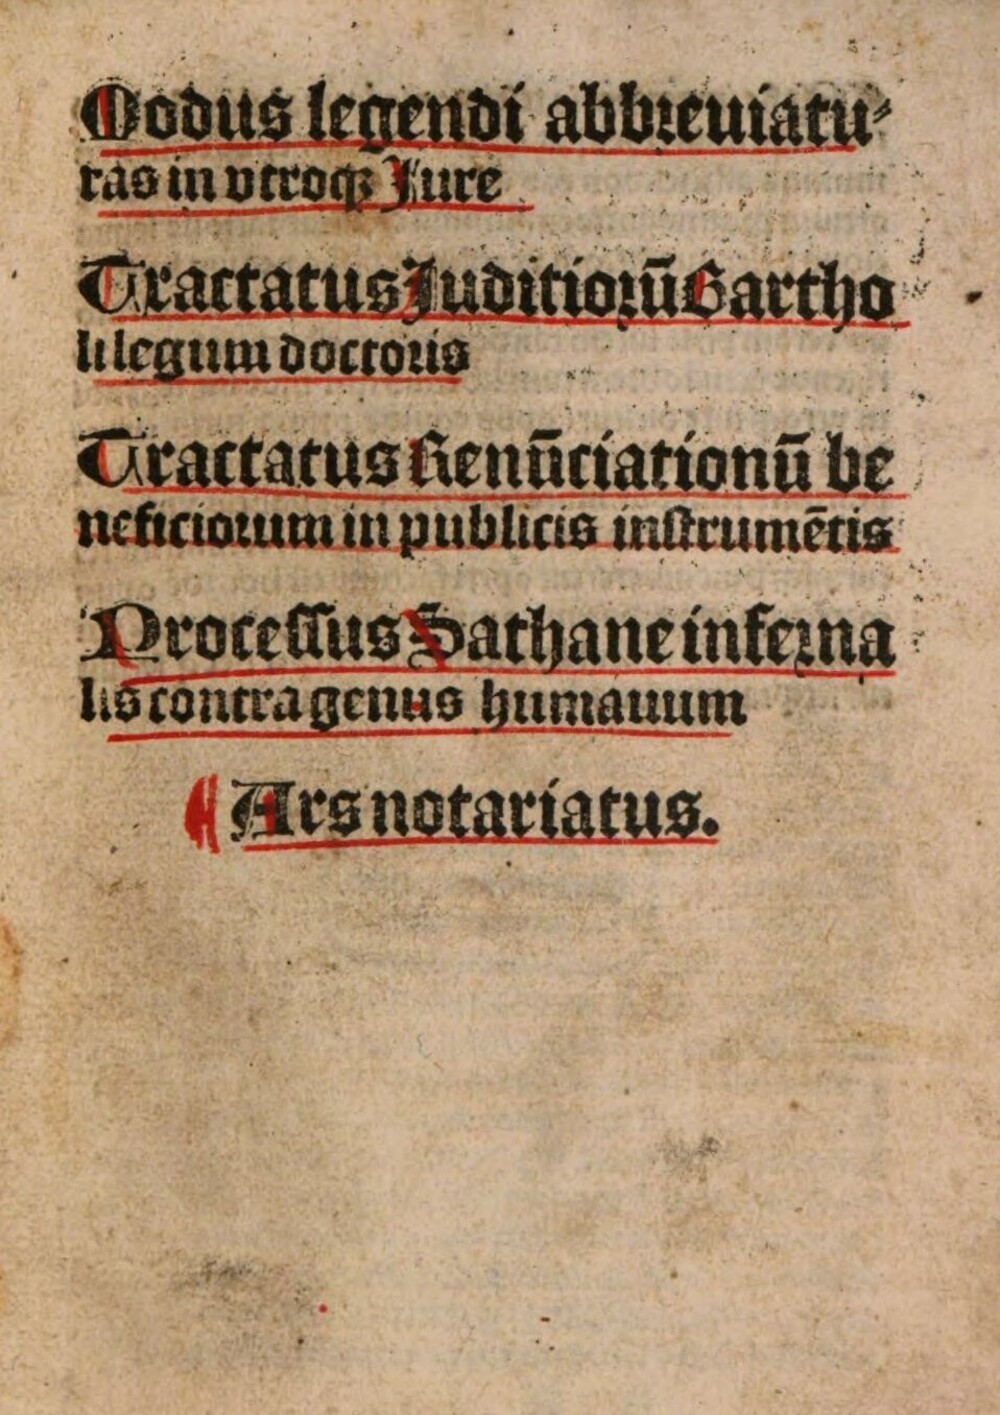 Modus legendi abbreuiatu⸗
ras in vtroqꝫ Iure
Tractatus Iuditiorū Bartho
li legum doctoris
Tractatus Renūciationū be
neficiorum in publicis instrumētis
Processus Sathane inferna
lis contra genus humauum
¶ Ars notariatus.